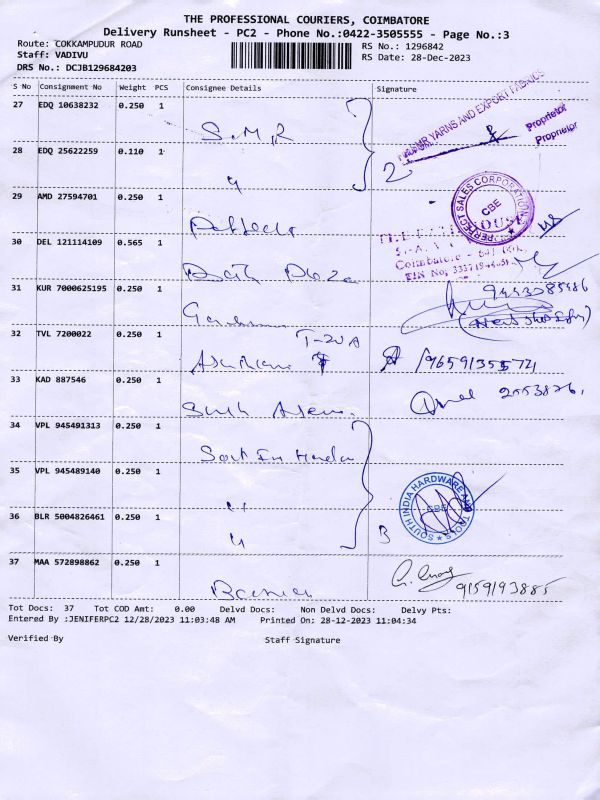 THE PROFESSIONAL COURIERS, COIMBATORE
Delivery Runsheet - PC2 - Phone No.:0422-3505555 - Page No.:3
Route: COKKAMPUDUR ROAD
RS No.: 1296842
Staff: VADIVU
RS Date: 28-Dec-2023
DRS No.: DCJB129684203
S No Consignment No Weight PCS Consignee Details Signature
27 EDQ 10638232 0.250 1
S.M.R
YARNS AND EXPORT FABRICS
Proprietor
Proprietor
28 EDQ 25622259 0.110 1
2
29 AMD 27594701 0.250 1
PERFECT SALES CORPORATION
CBE
30 DEL 121114109 0.565 1
Coimbatore
31 KUR 7000625195 0.250 1
32 TVL 7200022 0.250 1
9659135574
33 KAD 887546 0.250 1
34 VPL 945491313 0.250 1
35 VPL 945489140 0.250 1
SOUTH INDIA HARDWARE AND TOOLS
CBE
36 BLR 5004826461 0.250 1
3
37 MAA 572898862 0.250 1
9159193885
Tot Docs: 37 Tot COD Amt: 0.00 Delvd Docs: Non Delvd Docs: Delvy Pts:
Entered By :JENIFERPC2 12/28/2023 11:03:48 AM Printed On; 28-12-2023 11:04:34
Verified By Staff Signature